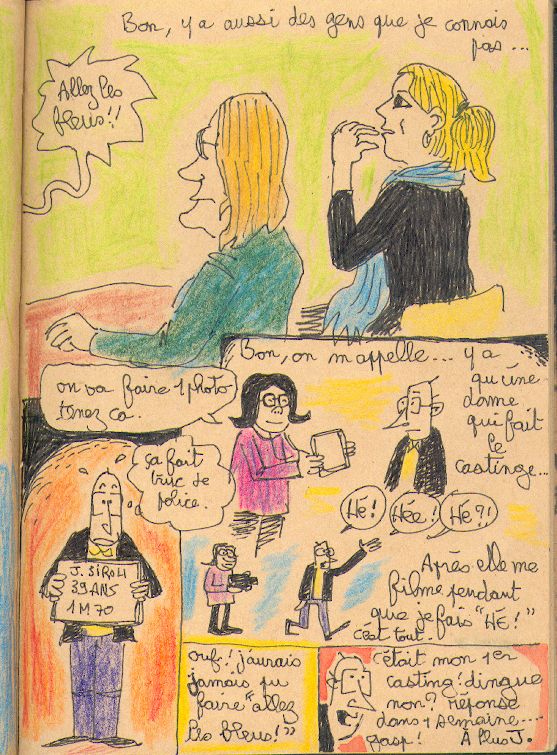 Bon, y a aussi des gens que je connois
pas...
Allez les
bleus!!
Bon, on m'appelle... y a
qu'une
donne
qui fait
le
castinge...
on va faire 1 photo
tenez ca.
ça fait
truc de
police.
J. SiROLi
39 ANS
1 M 70
Hé!
Hée!
Hé?!
Après elle me
filme pendant
que je fais "HÉ!"
c'est tout.
ouf! j'aurais
jamais pu
faire "allez
les bleus!"
c'était mon 1er
casting! dingue
non? réponse
dans 1 semaine....
gasp! À plus J.